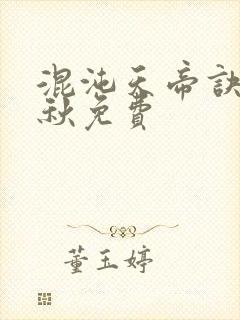 混沌天帝訣
秋免費
董玉婷